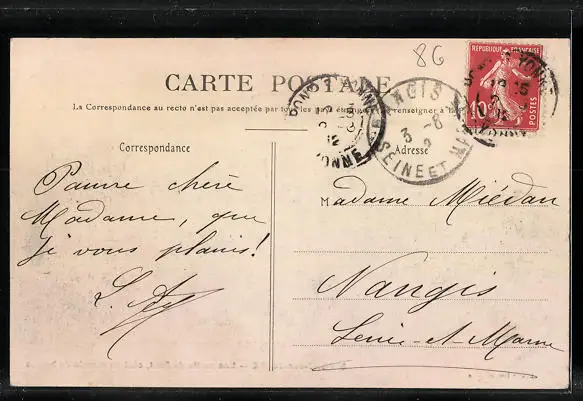 86
REPUBLIQUE FRANÇAISE
10
POSTES
CARTE POSTALE
La Correspondance au recto n'est pas acceptée par tous les pays étrangers. Se renseigner à la
NANGIS
3 - 8
SEINE ET M
YONNE
Correspondance
Adresse
Pauvre chère
Madame, que
je vous plains!
Madame Miédan
Nangis
Seine-et-Marne